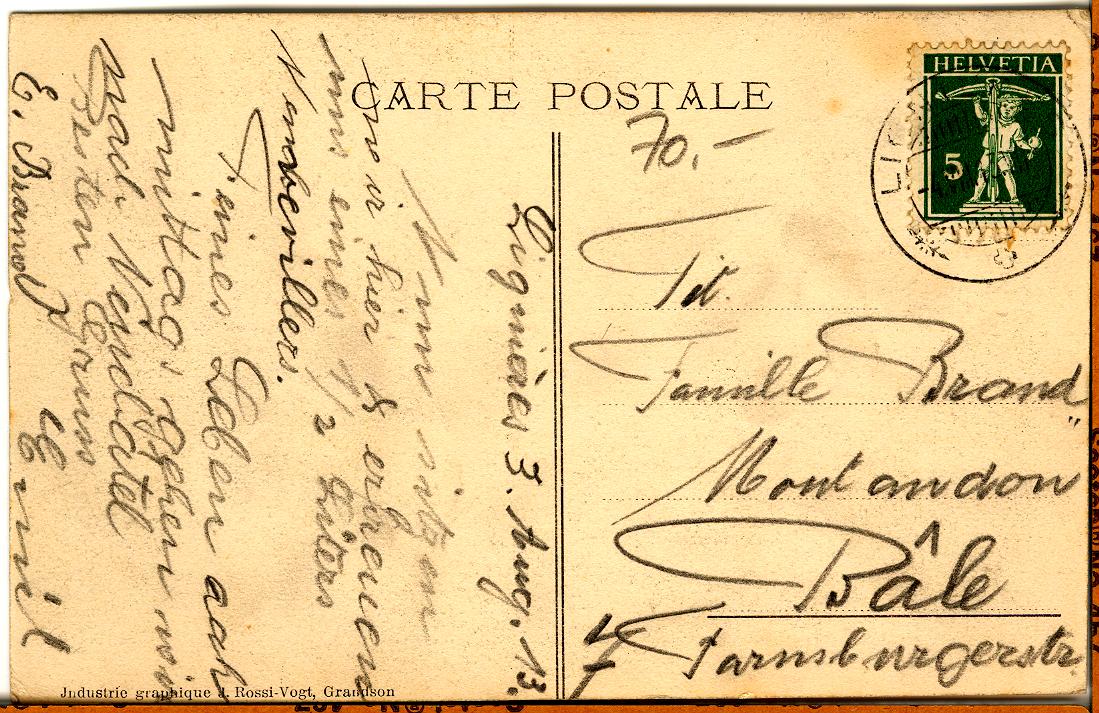 CARTE POSTALE
HELVETIA
5
LIG
70.-
Tit.
Famille Brand
Montandon
Bâle
Farnsburgerstr
Lignières 3. Aug. 13.
Nun sitzen
wir hier & erfreuen
uns eines 1/2 Liters
Feines Leben ach
mittag's gehen wir
nach Neuchâtel
Besten Gruss
E. Brand
Emil
Industrie graphique J. Rossi-Vogt, Grandson